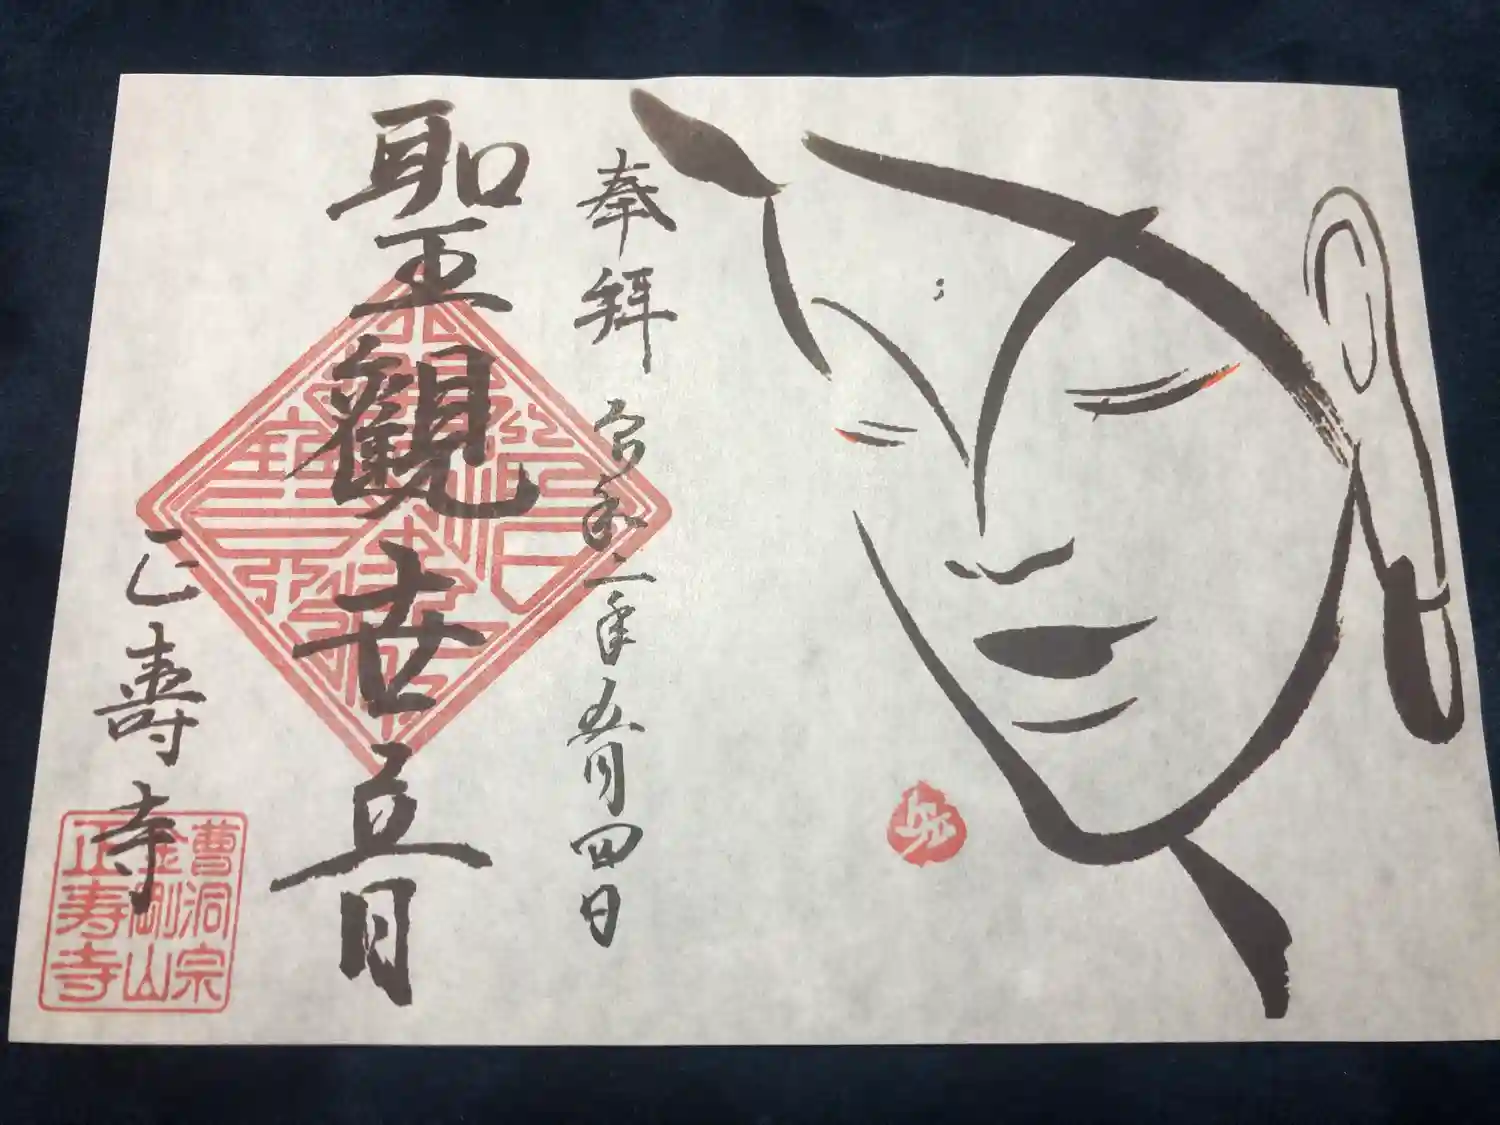 奉拝 令和二年五月四日
聖観世音
正寿寺
曹洞宗
金剛山
正寿寺